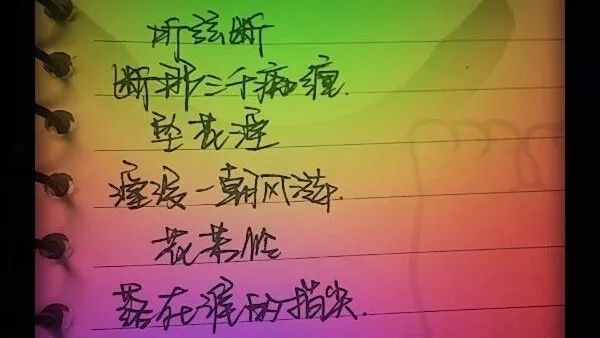 听弦断
断那三千痴缠.
坠花湮
湮没一朝风涟.
花若怜
落在谁的指尖.